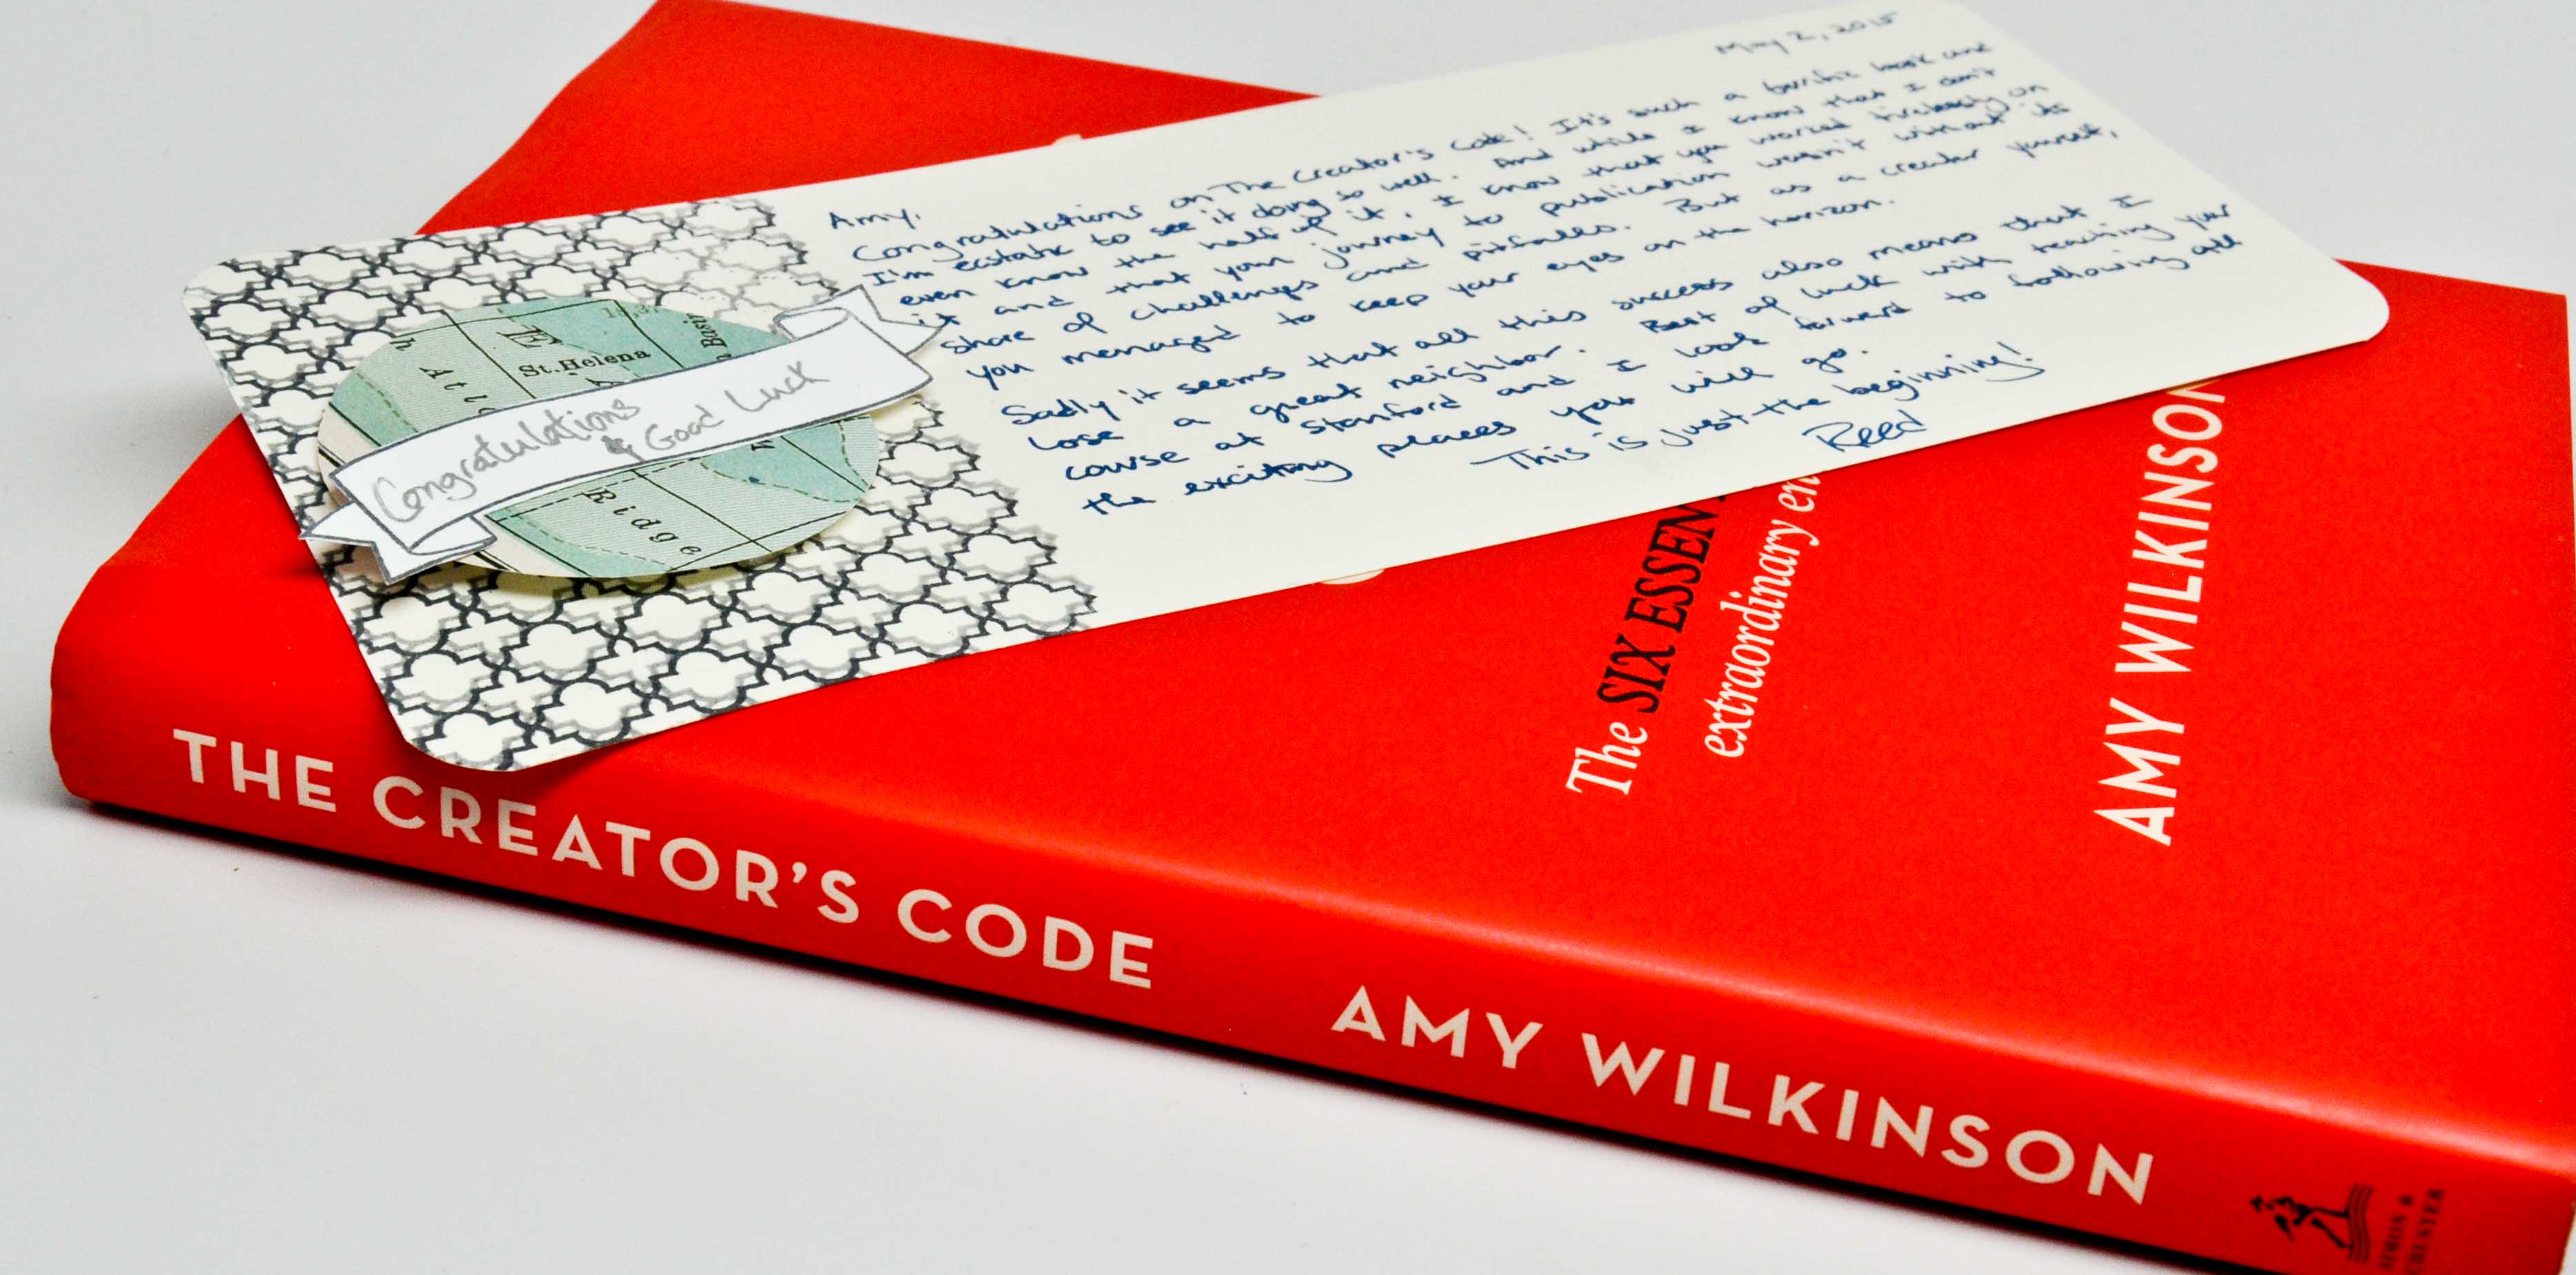 May 2, 2015
Amy,
Congratulations on The Creator's Code! It's such a terrific book and
I'm ecstatic to see it doing so well. And while I know that I don't
even know the half of it, I know that you worked tirelessly on
it and that your journey to publication wasn't without its
share of challenges and pitfalls. But as a creator yourself,
you managed to keep your eyes on the horizon.
Sadly it seems that all this success also means that I
lose a great neighbor. Best of luck with teaching your
course at Stanford and I look forward to following all
the exciting places you will go.
This is just the beginning!
Reed
E
St. Helena
Atl
Basin
Ridge
Congratulations
& Good Luck
The SIX ESSEN
extraordinary en
AMY WILKINSON
THE CREATOR'S CODE AMY WILKINSON
SIMON &
SCHUSTER